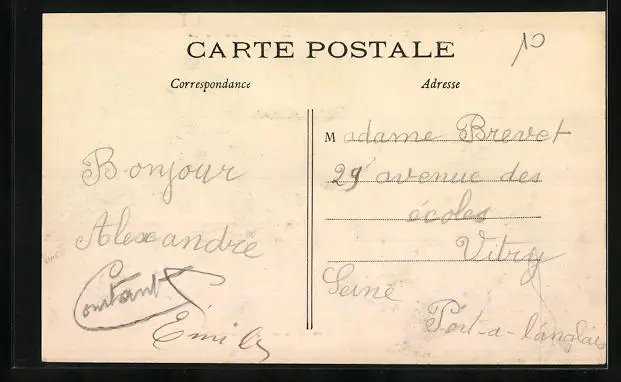 CARTE POSTALE
10
Correspondance
Adresse
Bonjour
Alexandre
Constant
Emily
Madame Brevet
29 avenue des
écoles
Vitry
Seine
Port-a-l'anglais